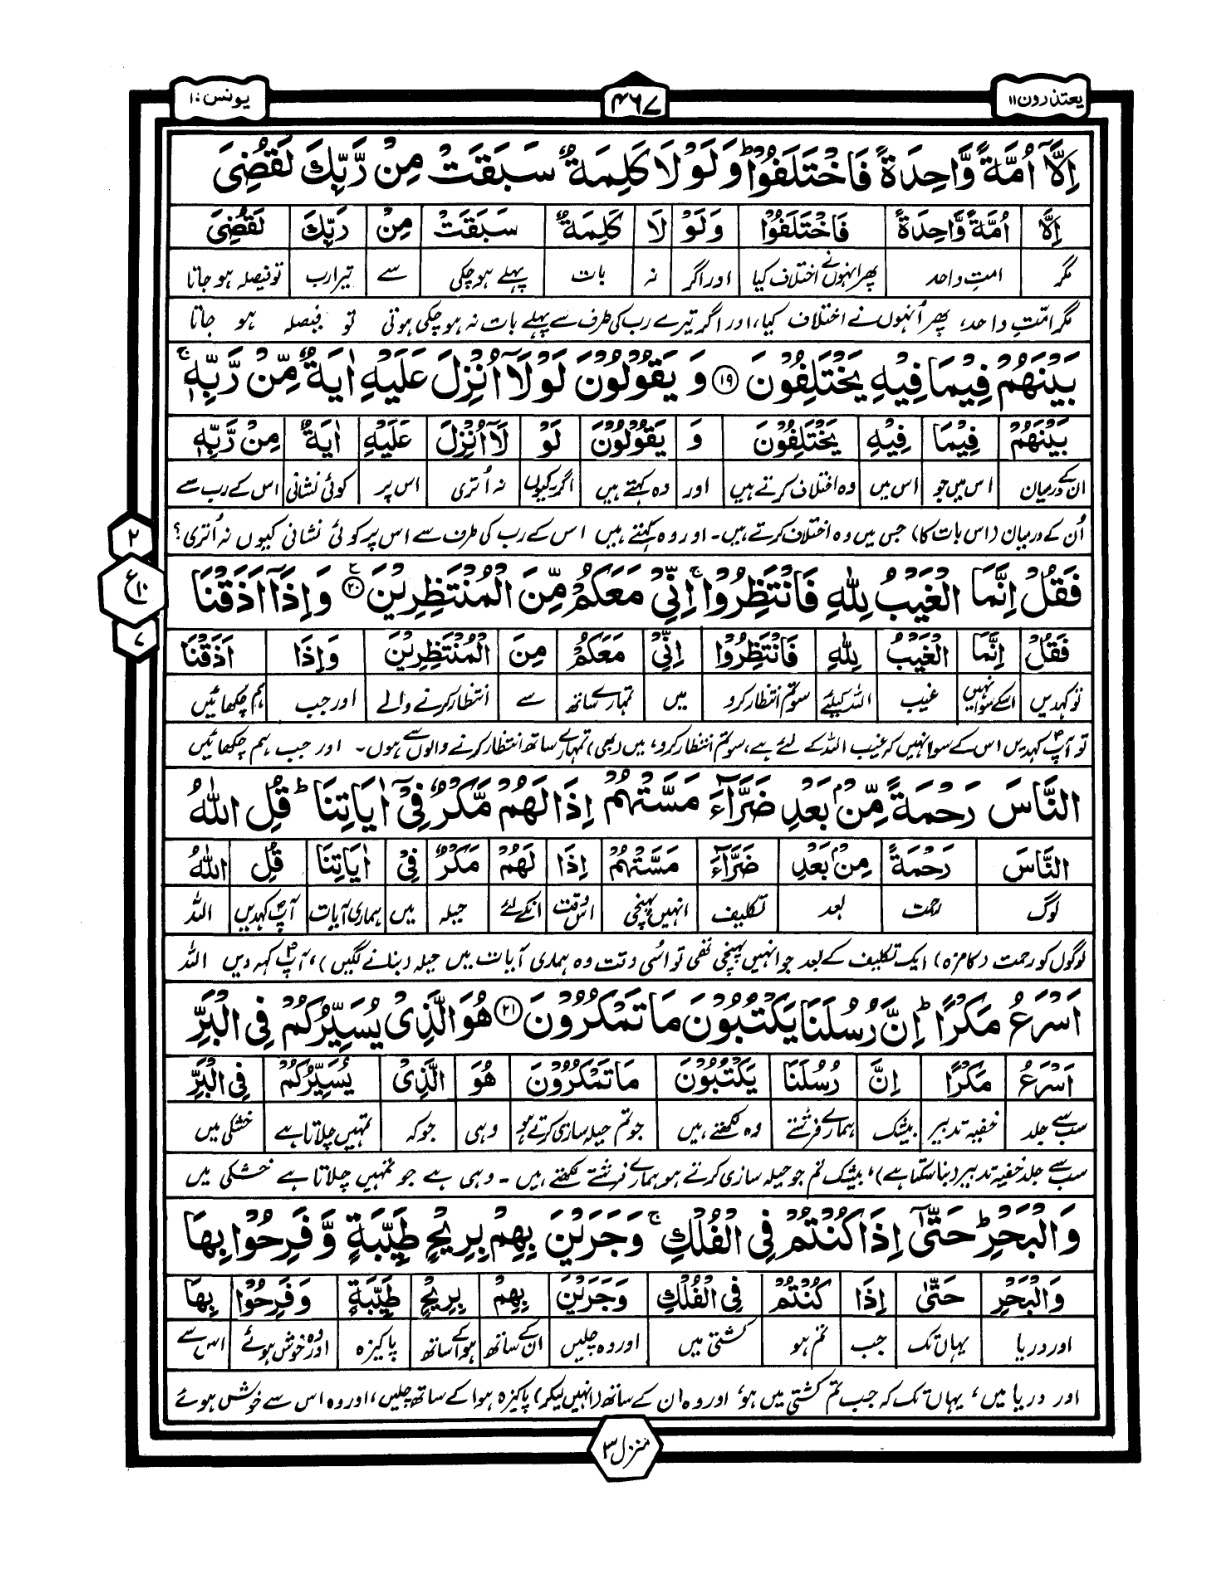 یعتذرون ۱۱
۴۶۷
یونس ۱۰
اِلَّاۤ اُمَّةً وَّاحِدَةً فَاخْتَلَفُوْا ؕ وَ لَوْ لَا كَلِمَةٌ سَبَقَتْ مِنْ رَّبِّكَ لَقُضِیَ
اِلَّا اُمَّةً وَّاحِدَةً فَاخْتَلَفُوْا وَلَوْ لَا كَلِمَةٌ سَبَقَتْ مِنْ رَبِّكَ لَقُضِیَ
مگر امتِ واحد پھر انہوں نے اختلاف کیا اور اگر نہ بات پہلے ہو چکی سے تیرا رب تو فیصلہ ہو جاتا
مگر امّتِ واحد، پھر اُنہوں نے اختلاف کیا، اور اگر تیرے رب کی طرف سے پہلے بات نہ ہو چکی ہوتی تو فیصلہ ہو جاتا
بَیْنَهُمْ فِیْمَا فِیْهِ یَخْتَلِفُوْنَ ۱۹ وَ یَقُوْلُوْنَ لَوْ لَاۤ اُنْزِلَ عَلَیْهِ اٰیَةٌ مِّنْ رَّبِّهٖ ۚ
بَیْنَهُمْ فِیْمَا فِیْهِ یَخْتَلِفُوْنَ وَ یَقُوْلُوْنَ لَوْ لَاۤ اُنْزِلَ عَلَیْهِ اٰیَةٌ مِنْ رَّبِّهٖ
ان کے درمیان اس میں جو اس میں وہ اختلاف کرتے ہیں اور وہ کہتے ہیں اگر کیوں نہ اُتری اس پر کوئی نشانی اس کے رب سے
اُن کے درمیان (اس بات کا) جس میں وہ اختلاف کرتے ہیں۔ اور وہ کہتے ہیں اس کے رب کی طرف سے اس پر کوئی نشانی کیوں نہ اُتری؟
۲
ع
۱۰
۷
فَقُلْ اِنَّمَا الْغَیْبُ لِلّٰهِ فَانْتَظِرُوْا ۚ اِنِّیْ مَعَكُمْ مِّنَ الْمُنْتَظِرِیْنَ ۲۰ وَ اِذَاۤ اَذَقْنَا
فَقُلْ اِنَّمَا الْغَیْبُ لِلّٰهِ فَانْتَظِرُوْا اِنِّیْ مَعَكُمْ مِنَ الْمُنْتَظِرِیْنَ وَاِذَا اَذَقْنَا
تو کہدیں اسکے سوا نہیں غیب اللہ کیلئے سو تم انتظار کرو میں تمہارے ساتھ سے انتظار کرنے والے اور جب ہم چکھائیں
تو آپؐ کہدیں اس کے سوا نہیں کہ غیب اللہ کے لئے ہے، سو تم انتظار کرو، میں (بھی) تمہارے ساتھ انتظار کرنے والوں سے ہوں۔ اور جب ہم چکھائیں
النَّاسَ رَحْمَةً مِّنْۢ بَعْدِ ضَرَّآءَ مَسَّتْهُمْ اِذَا لَهُمْ مَّكْرٌ فِیْۤ اٰیَاتِنَا ؕ قُلِ اللّٰهُ
النَّاسَ رَحْمَةً مِنْۢ بَعْدِ ضَرَّآءَ مَسَّتْهُمْ اِذَا لَهُمْ مَكْرٌ فِیْ اٰیَاتِنَا قُلِ اللّٰهُ
لوگ رحمت بعد تکلیف انہیں پہنچی اس وقت انکے لئے حیلہ میں ہماری آیات آپؐ کہدیں اللہ
لوگوں کو رحمت (کا مزہ) ایک تکلیف کے بعد جو انہیں پہنچی تھی تو اُسی وقت وہ ہماری آیات میں حیلہ (بنانے لگیں)، آپؐ کہہ دیں اللہ
اَسْرَعُ مَكْرًا ؕ اِنَّ رُسُلَنَا یَكْتُبُوْنَ مَا تَمْكُرُوْنَ ۲۱ هُوَ الَّذِیْ یُسَیِّرُكُمْ فِی الْبَرِّ
اَسْرَعُ مَكْرًا اِنَّ رُسُلَنَا یَكْتُبُوْنَ مَا تَمْكُرُوْنَ هُوَ الَّذِیْ یُسَیِّرُكُمْ فِی الْبَرِّ
سب سے جلد خفیہ تدبیر بیشک ہمارے فرشتے وہ لکھتے ہیں جو تم حیلہ سازی کرتے ہو وہی جو کہ تمہیں چلاتا ہے خشکی میں
سب سے جلد خفیہ تدبیر (بنا سکتا ہے)، بیشک تم جو حیلہ سازی کرتے ہو ہمارے فرشتے لکھتے ہیں۔ وہی ہے جو تمہیں چلاتا ہے خشکی میں
وَ الْبَحْرِ ؕ حَتّٰۤی اِذَا كُنْتُمْ فِی الْفُلْكِ ۚ وَ جَرَیْنَ بِهِمْ بِرِیْحٍ طَیِّبَةٍ وَّ فَرِحُوْا بِهَا
وَالْبَحْرِ حَتّٰی اِذَا كُنْتُمْ فِی الْفُلْكِ وَجَرَیْنَ بِهِمْ بِرِیْحٍ طَیِّبَةٍ وَفَرِحُوْا بِهَا
اور دریا یہاں تک جب تم ہو کشتی میں اور وہ چلیں ان کے ساتھ ہوا کے ساتھ پاکیزہ اور وہ خوش ہوئے اس سے
اور دریا میں، یہاں تک کہ جب تم کشتی میں ہو، اور وہ ان کے ساتھ (انہیں لیکر) پاکیزہ ہوا کے ساتھ چلیں، اور وہ اس سے خوش ہوئے
منزل ۳